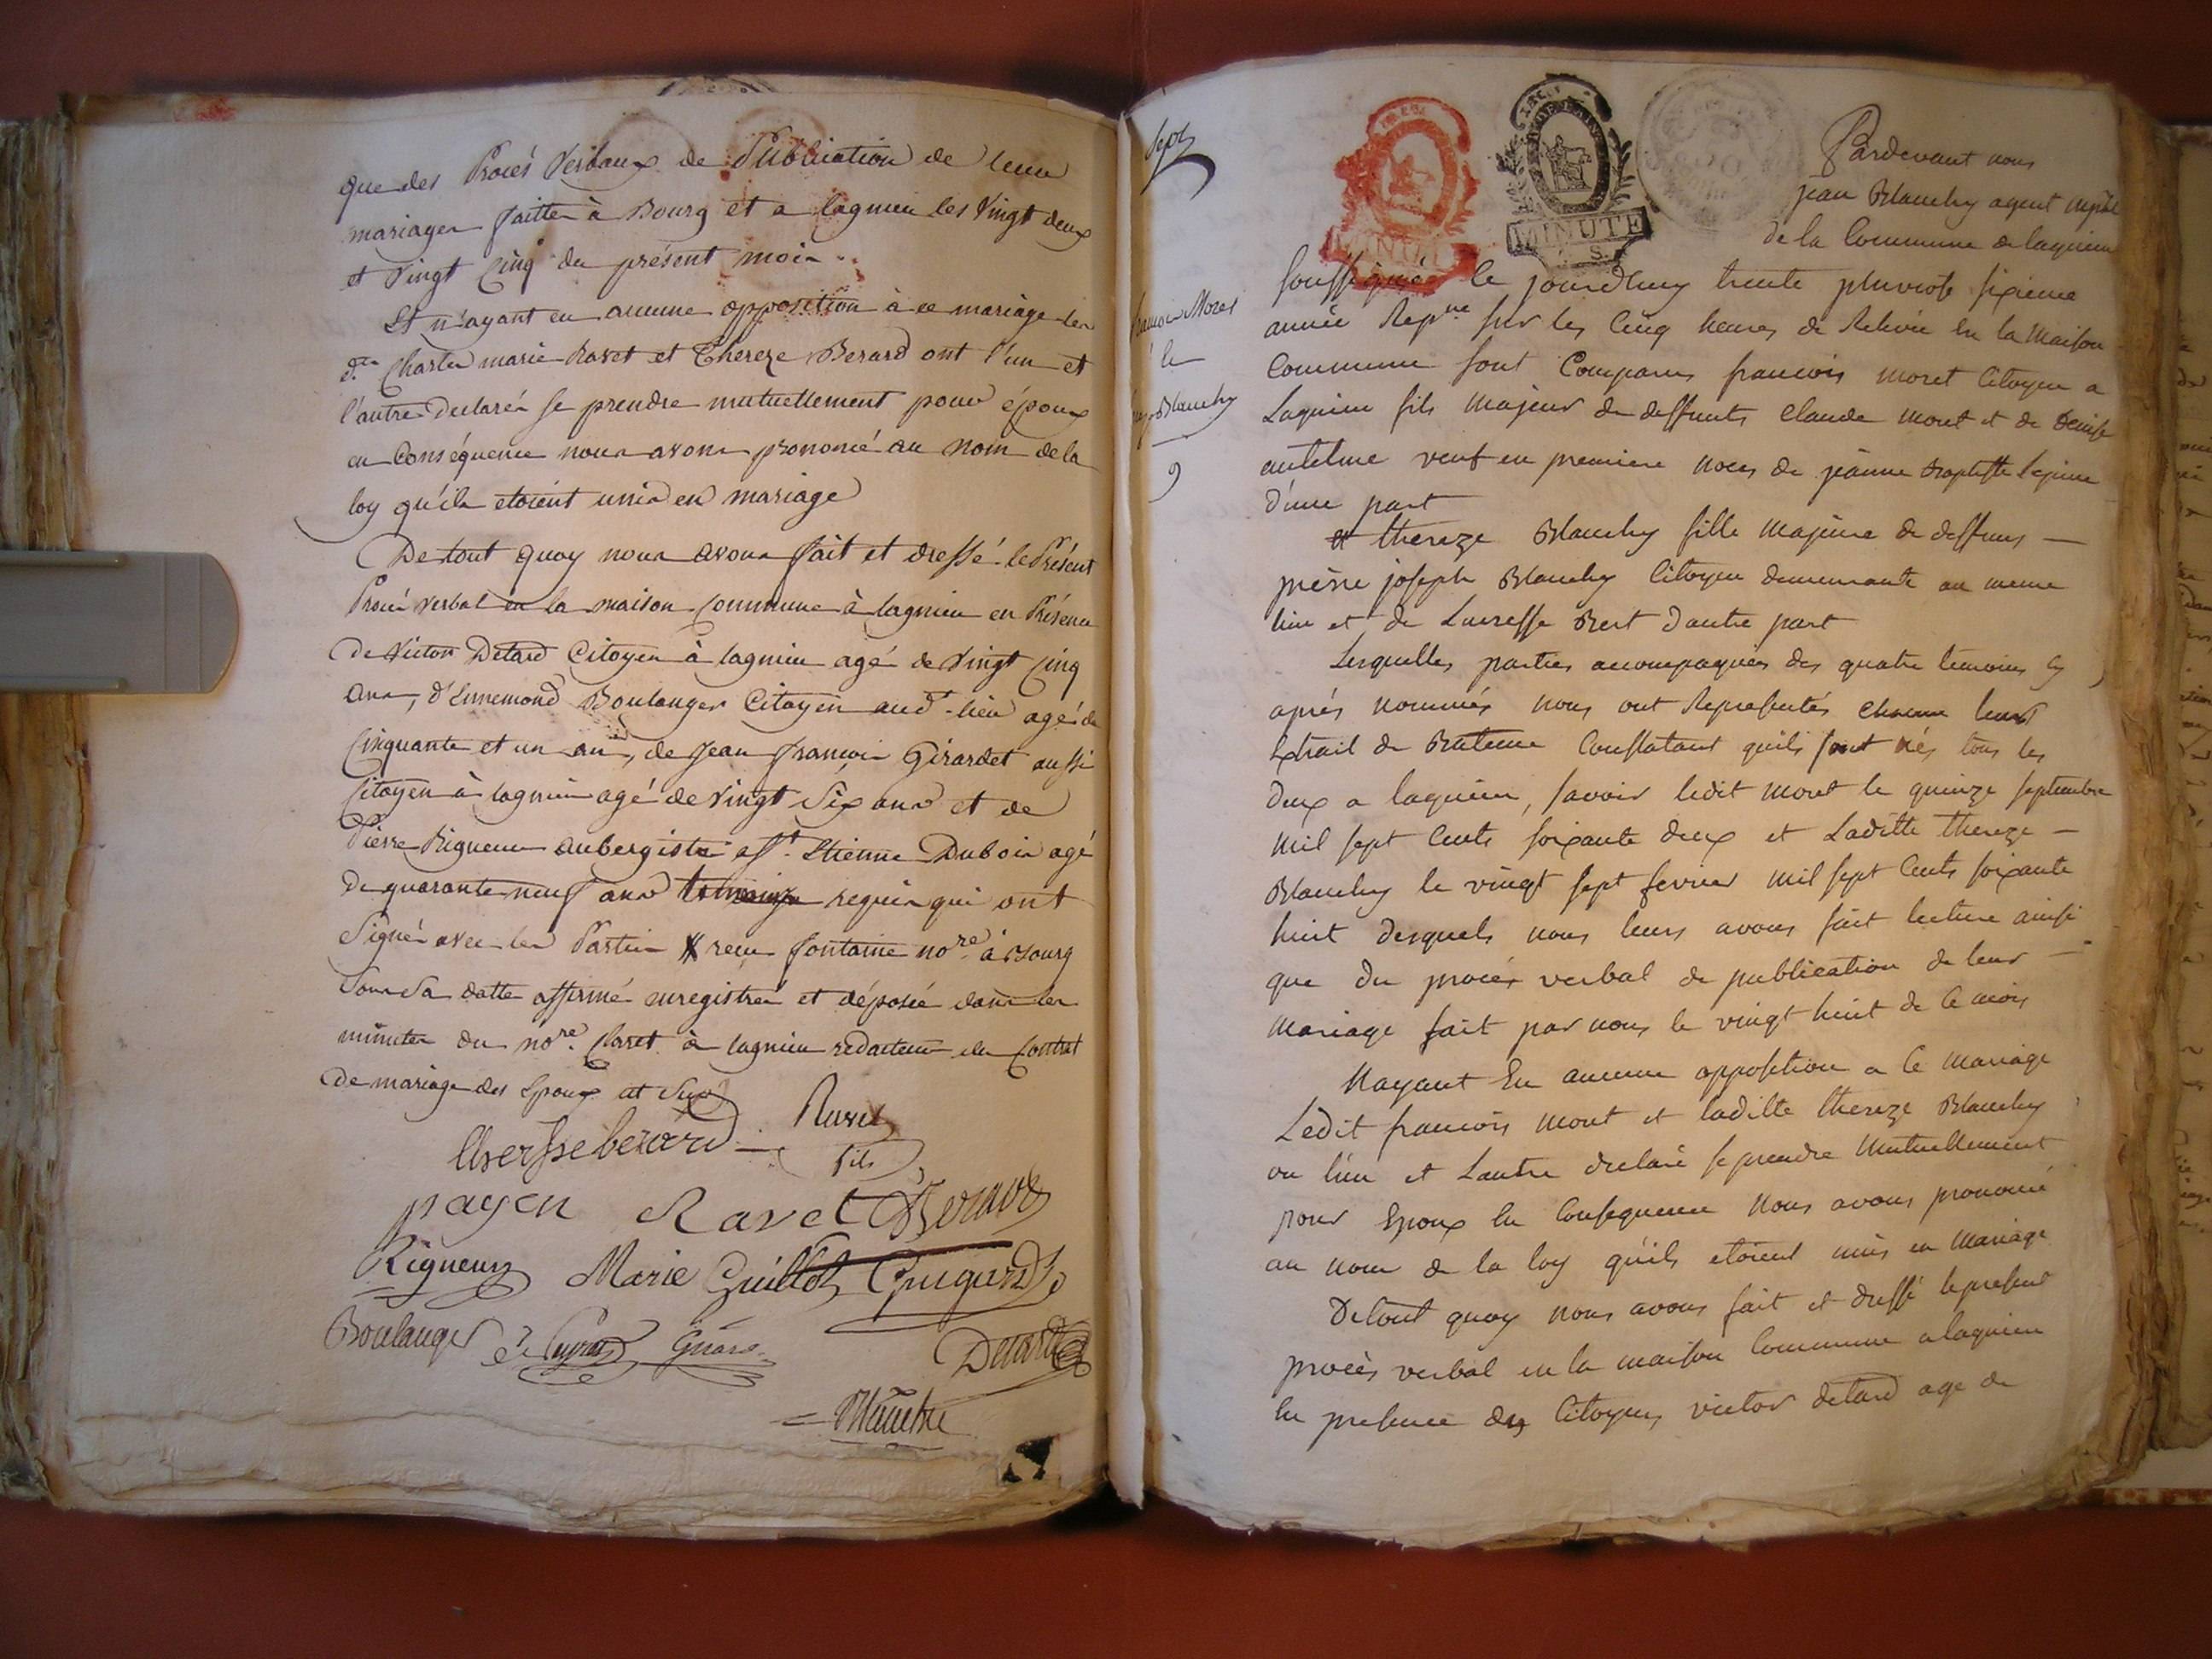 que des Procés Verbaux de Publication de leur
mariages faitter à Bourg et a lagnieu les Vingt deux
et Vingt Cinq du présent mois
Et n'ayant eu aucune opposition à ce mariage les
dts Charles marie Ravet et Thereze Berard ont l'un et
l'autre declarés se prendre mutuellement pour époux
en Conséquence nous avons prononcé au nom de la
loy qu'ils etoient unis en mariage
De tout quoy nous avons fait et dressé le Présent
Procés verbal en la maison Commune à lagnieu en Présence
De Victor Detard Citoyen à lagnieu agé de Vingt Cinq
ans, d'Ennemond Boulanger Citoyen aud. lieu agé de
Cinquante et un ans, de Jean françois Girardet aussi
Citoyen à lagnieu agé de Vingt Six ans et de
Pierre Rigueur aubergiste a St. Etienne Dubois agé
De quarante neuf ans temoins requis qui ont
Signés avec les Parties recu fontaine nore. à Bourg
Sous Sa datte affirmé enregistrée et déposée dans les
minutes du nore. Claret à lagnieu redacteur du Contrat
De mariage des Epoux
Ravet
fils
payen Ravet Berard
Rigueur Marie Guillot
Boulanger
Detard
Sept
Pardevant nous
jean Blanchy agent mpal
de la Commune de lagnieu
soussigné le jourdhuy trente pluviose sixieme
année Repne sur les Cinq heures de Relevée en la Maison
Commune sont Comparus francois moret Citoyen a
françois Moret
Lagnieu fils Majeur de deffunts Claude moret et de denise
&
Blanchy
antelme veuf en premiere noces de jeanne Baptiste Lejeune
9
d'une part
et thereze Blanchy fille Majeure de deffunt
pierre joseph Blanchy Citoyen demeurante au meme
lieu et de Lucresse Bert d'autre part
Lesquelles parties accompagnées des quatre temoins cy
après nommés nous ont Representés leurs
Extrait de Batteme Constatant quils sont nés tous les
deux a lagnieu, savoir ledit moret le quinze septembre
mil sept Cents soixante deux et Laditte thereze
Blanchy le vingt sept fevrier mil sept Cents soixante
huit desquels nous leurs avons fait lecture ainsi
que du procés verbal de publication de leur
mariage fait par nous le vingt huit de Ce mois
Nayant Eu aucune opposition a Ce mariage
Ledit francois moret et laditte thereze Blanchy
on l'un et Lautre declaré se prendre Mutuellement
pour Epoux En Consequence Nous avons prononcé
au nom de la loy qu'ils etoient unis en mariage
De tout quoy nous avons fait et dressé le present
procès verbal en la maison Commune a lagnieu
En presence des Citoyens victor detard age de